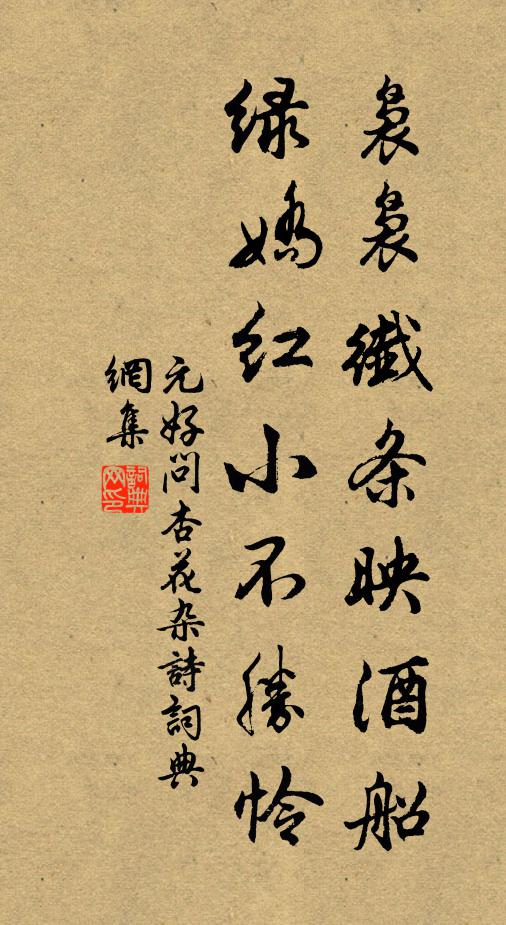 袅袅纖条映酒船
绿娇红小不勝怜
元好问杏花杂詩詞典
網集
詞典网印